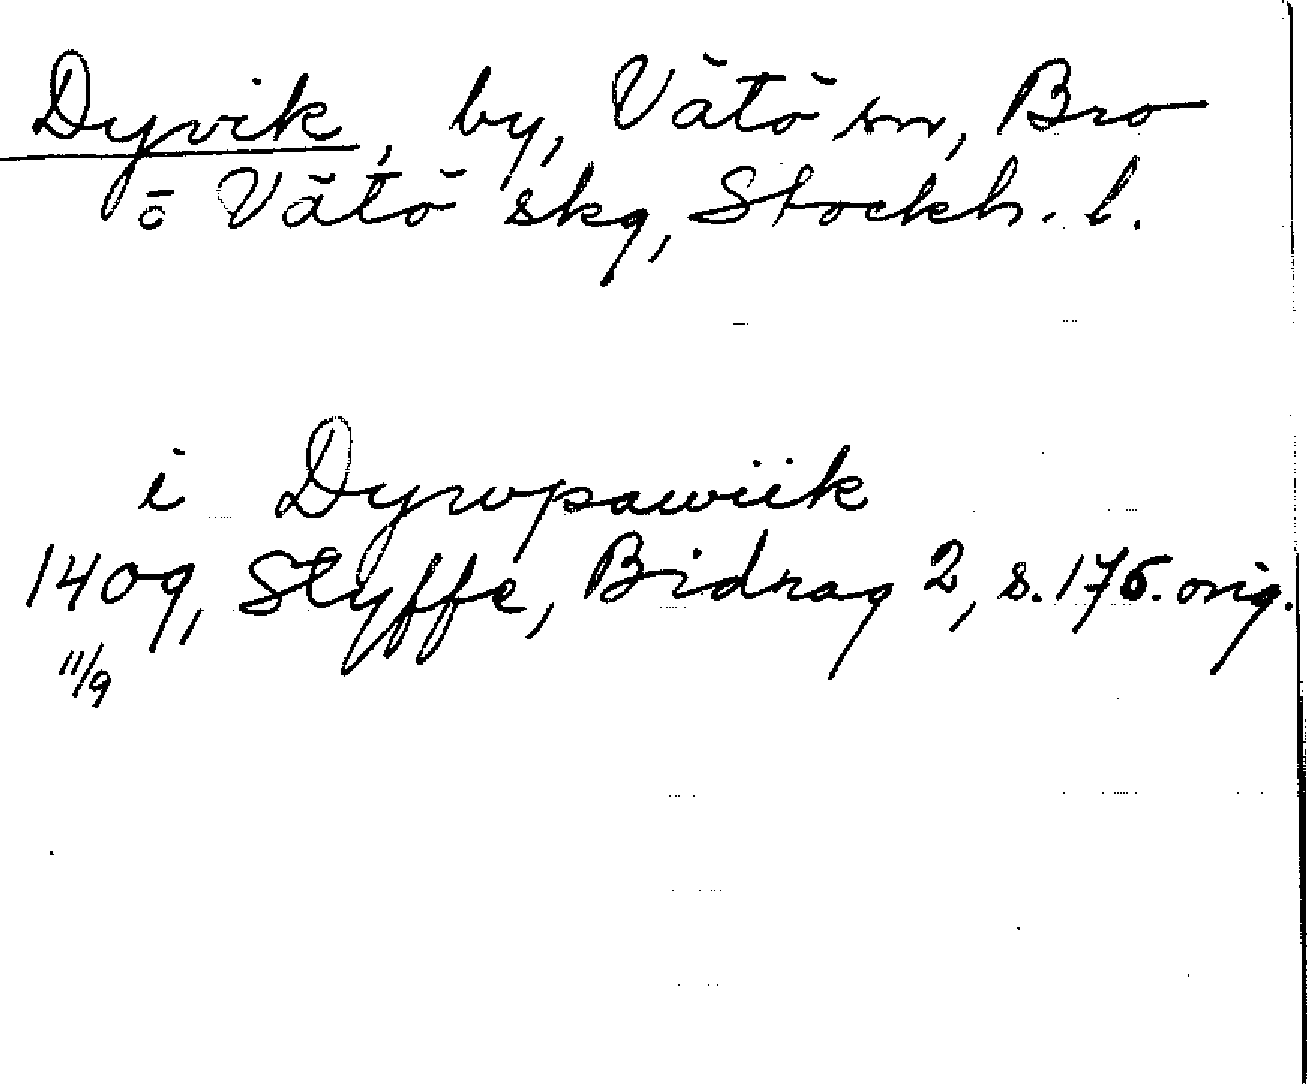 Dyvik, by, Vätö sn, Bro
o Vätö skg, Stockh. l.
i Dywpawiik
1409, Styffe, Bidrag 2, s. 176. orig.
11/9